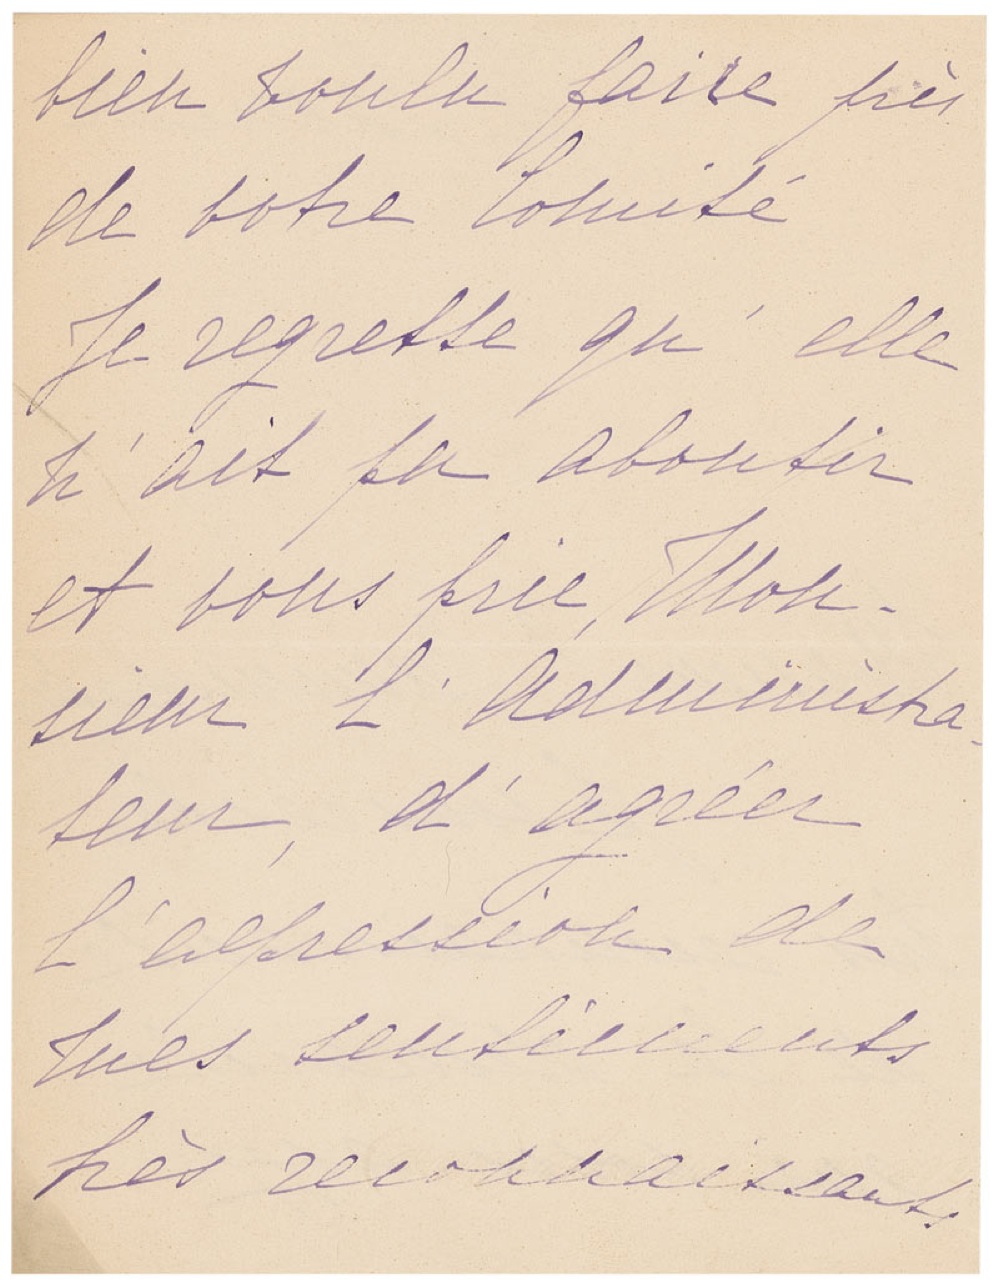 bien voulu faire près
de votre Comité
Je regrette qu'elle
n'ait pu aboutir
et vous prie, Mon-
sieur l'Administra-
teur, d'agréer
l'expression de
mes sentiments
très reconnaissants